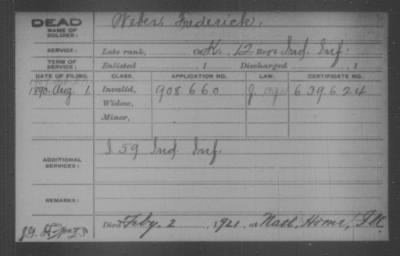 DEAD
NAME OF SOLDIER:
Weber, Frederick,
SERVICE:
Late rank, Co K, 12 Reg't Ind. Inf.
TERM OF SERVICE:
Enlisted , 1 Discharged , 1
DATE OF FILING. CLASS. APPLICATION NO. LAW. CERTIFICATE NO.
1890, Aug 1. Invalid, 908660 639624
Widow,
Minor,
ADDITIONAL SERVICES:
I 59 Ind. Inf.
REMARKS:
Died Feby. 2 , 1921, at Natl. Home,